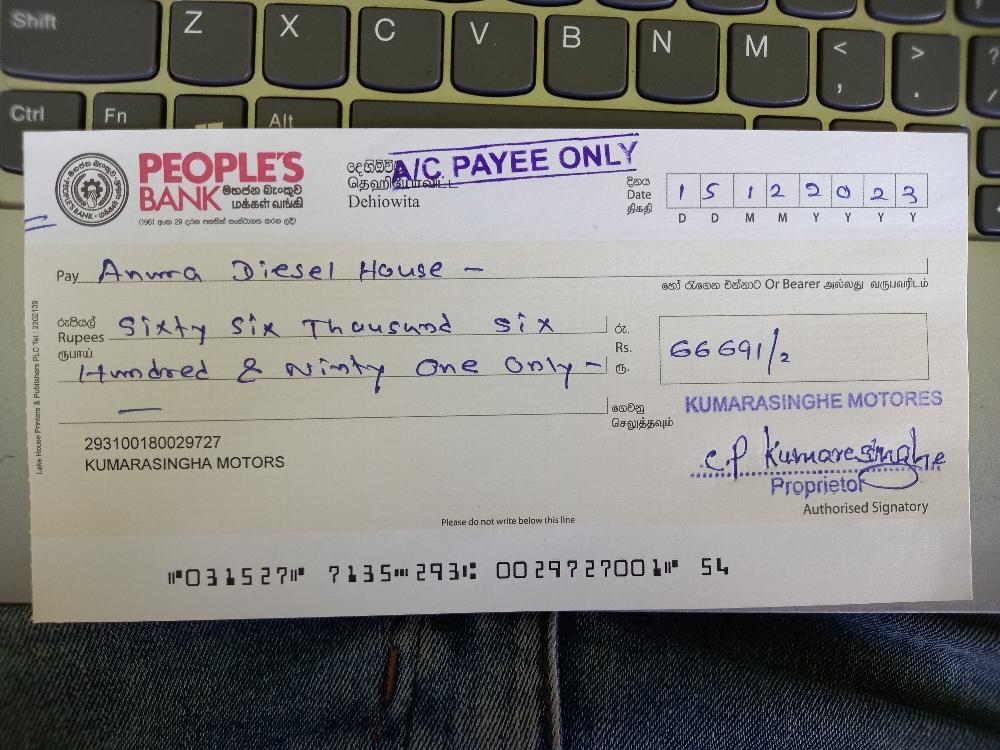 Shift Z X C V B N M < , > . ? /
Ctrl Fn Alt
PEOPLE'S BANK
මහජන බැංකුව
மக்கள் வங்கி
(1961 අංක 29 දරන පනතින් සංස්ථාගත කරන ලදී)
Dehiowita
A/C PAYEE ONLY
දිනය
Date
திகதி
1 5 1 2 2 0 2 3
D D M M Y Y Y Y
Pay Anura Diesel House -
හෝ රැගෙන එන්නාට Or Bearer அல்லது வருபவரிடம்
රුපියල්
Rupees
ரூபாய்
Sixty Six Thausund Six
Hundred & Ninty One Only -
රු.
Rs.
ரூ.
66691/2
ගෙවනු
செலுத்தவும்
KUMARASINGHE MOTORES
293100180029727
KUMARASINGHA MOTORS
C.P Kumarasinghe
Proprietor
Authorised Signatory
Please do not write below this line
Lake House Printers & Publishers PLC Tel : 2302139
⑈031527⑈ 7135⑉293⑆ 0029727001⑈ 54